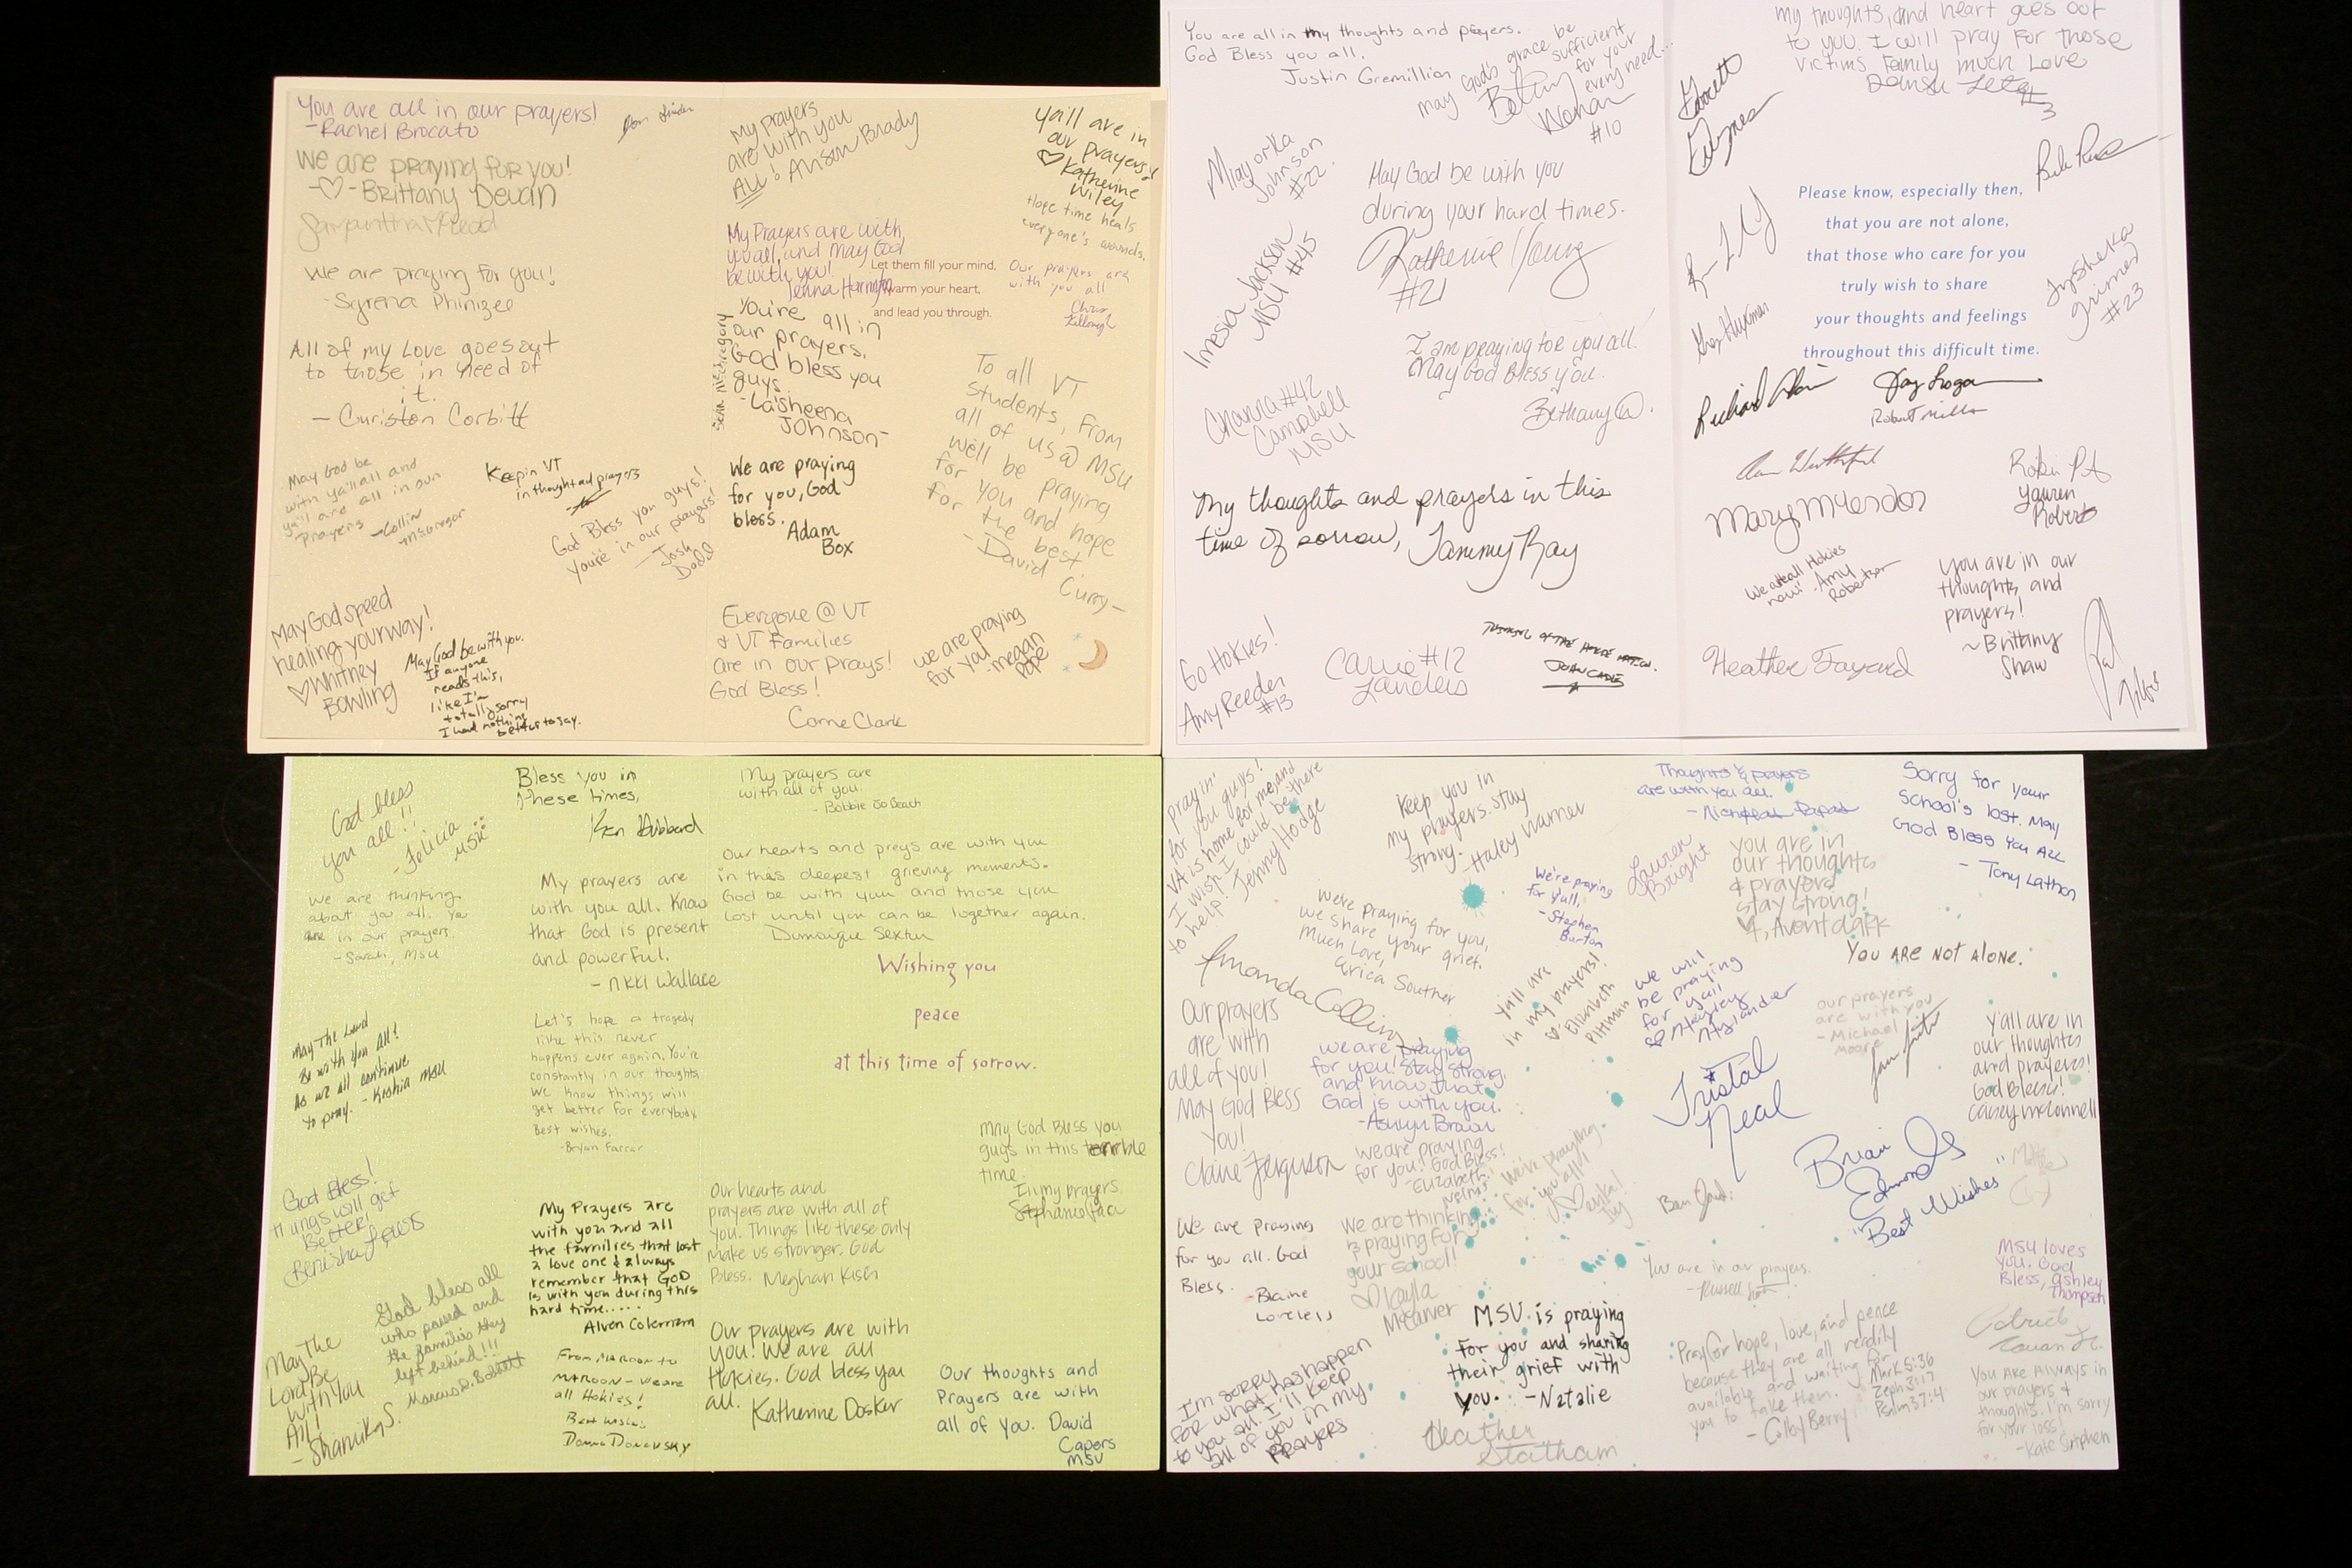 You are all in our prayers!
-Rachel Brocato
We are praying for you!
-♡-Brittany Devan
Samantha Read
We are praying for you!
-Syrena Phinizee
All of my Love goes out
to those in need of
it.
- Curiston Corbitt
May God be
with ya'll all and
ya'll are all in our
Prayers -Collin
McGregor
Keepin VT
in thought and prayers
God Bless you guys!
You're in our prayers!
-Josh
Dodd
May God speed
healing your way!
♡Whitney
Bowling
May God be with you.
If anyone
reads this,
like I'm
totally sorry
I had nothing
better to say.
My prayers
are with you
ALL! Anson Brady
Ya'll are in
our prayers!
♡Katherine
Wiley
Hope time heals
everyone's wounds.
My Prayers are with
you all, and May God
be with you!
Jenna Harrington
Let them fill your mind,
warm your heart,
and lead you through.
Our prayers are
with you all
Chris
Killough
Sean McGregory
You're all in
our prayers.
God bless you
guys.
-La'sheena
Johnson-
We are praying
for you, God
bless.
Adam
Box
To all VT
students, From
all of us @ MSU
we'll be praying
for you and hope
for the best
-David
Curry-
Everyone @ VT
& VT Families
are in our prays!
God Bless!
Corne Clark
we are praying
for you -megan
Pope
You are all in my thoughts and prayers.
God Bless you all.
Justin Gremillion
May God's grace be
sufficient
for your
every need...
#10
Mayorka
Johnson
#22
May God be with you
during your hard times.
Katherine Young
#21
Imesia Jackson
MSU #45
I am praying for you all.
May God Bless you.
Bethany
Channa #42
Campbell
MSU
My thoughts and prayers in this
time of sorrow, Tammy Ray
Go Hokies!
Amy Reeder
#13
Carrie #12
Landers
Thinking of the Hokie Nation.
my thoughts, and heart goes out
to you. I will pray for those
victims Family much Love
#3
Garrett
Please know, especially then,
that you are not alone,
that those who care for you
truly wish to share
your thoughts and feelings
throughout this difficult time.
Iysheka
Grimes
#23
Greg Huxman
Richard
Jay Logan
Robert Miller
Mary McLendon
Robin
Lauren
Roberts
We are all Hokies
now! -Amy
Robertson
you are in our
thoughts and
prayers!
~Brittany
Shaw
Heather Fayard
God bless
you all!!
-Felicia
MSU
Bless you in
these times,
Ken Hibbard
My prayers are
with all of you.
-Bobbie Jo Beach
We are thinking
about you all. You
are in our prayers.
-Sarah, MSU
My prayers are
with you all. Know
that God is present
and powerful.
-Nkki Wallace
Our hearts and preys are with you
in this deepest grieving moments.
God be with you and those you
lost until you can be together again.
Dominique Sexton
Wishing you
peace
at this time of sorrow.
May The Lord
Be with You All!
As we all continue
to pray. -Keshia MSU
Let's hope a tragedy
like this never
happens ever again. You're
constantly in our thoughts
We know things will
get better for everybody.
Best wishes.
-Bryan Farrar
May God Bless you
guys in this terrible
time.
In my prayers
Stephanie
God Bless!
things will get
Better!
Benisha Lewis
My Prayers are
with you and all
the families that lost
a love one & always
remember that GOD
is with you during this
hard time.....
Alven Coleman
Our hearts and
prayers are with all of
you. Things like these only
make us stronger. God
Bless. Meghan Kisch
God bless all
who passed and
the families they
left behind!!!
May The
Lord Be
With You
All!
-Shanika S.
From Maroon to
Maroon - we are
all Hokies!
Best wishes
Donna Donovsky
Our prayers are with
you! We are all
Hokies. God bless you
all. Katherine Dosker
Our thoughts and
Prayers are with
all of you. David
Capers
MSU
prayin'
for you guys!
VA is home for me and
I wish I could be there
to help! Jenny Hodge
Keep you in
my prayers. stay
strong.
-Haley Warner
Thoughts & prayers
are with you all.
-Nicholas
Sorry for your
school's lost. May
God Bless You All
- Tony Lathon
We're praying
for y'all.
-Stephen
Burton
Lauren
Bright
you are in
our thoughts
& prayers
stay strong!
♡, Avent Clark
We're praying for you,
we share your grief.
Much Love,
Erica Souther
Amanda Collins
You are not alone.
Y'all are
in my prayers!
♡ Elizabeth
Pittman
we will
be praying
for y'all
♡ Hayley
Hylander
our prayers
are with you
-Michael
Moore
Our prayers
are with
all of you!
May God Bless
You!
Claire Ferguson
we are praying
for you! Stay strong.
and know that
God is with you.
-Ashlyn Brown
Y'all are in
our thoughts
and prayers!
God Bless!
Casey McConnell
Tristal
Neal
we are praying
for you! God Bless!
-Elizabeth
We're praying
for you all!
Brian
Edmonds
"Best Wishes"
We are praying
for you all. God
Bless.
-Blaine
Loveless
We are thinking
& praying for
your school!
♡Kayla
McCarver
You are in our prayers.
-Russell
MSU loves
you. God
Bless, Ashley
Thompson
MSU is praying
For you and sharing
their grief with
you. -Natalie
I'm sorry
for what has happen
to you all. I'll keep
all of you in my
prayers
Heather
Statham
Pray for hope, love, and peace
because they are all readily
available and waiting for
you to take them.
-Colby Berry
Mark 5:36
Zeph 3:17
Psalm 37:4
You are always in
our prayers &
thoughts. I'm sorry
for your loss!
-Kate Sutphen